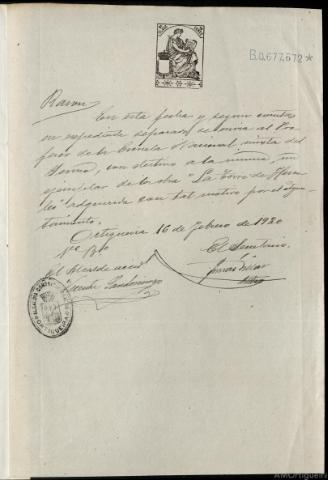 B.0.677.672*
Razon/
En esta fecha y segun consta
en expediente separado se envia al Pro-
fesor de la Escuela Nacional mixta del
con destino a la misma, un
ejemplar de la obra "La Torre de Hercu-
les" adquirida con tal motivo por el Ayun-
tamiento.
Ortigueira 16 de Febrero de 1920
Vº Bº
El Secretario.
El Alcalde acctl
ORTIGUEIRA
AMOrtigueira